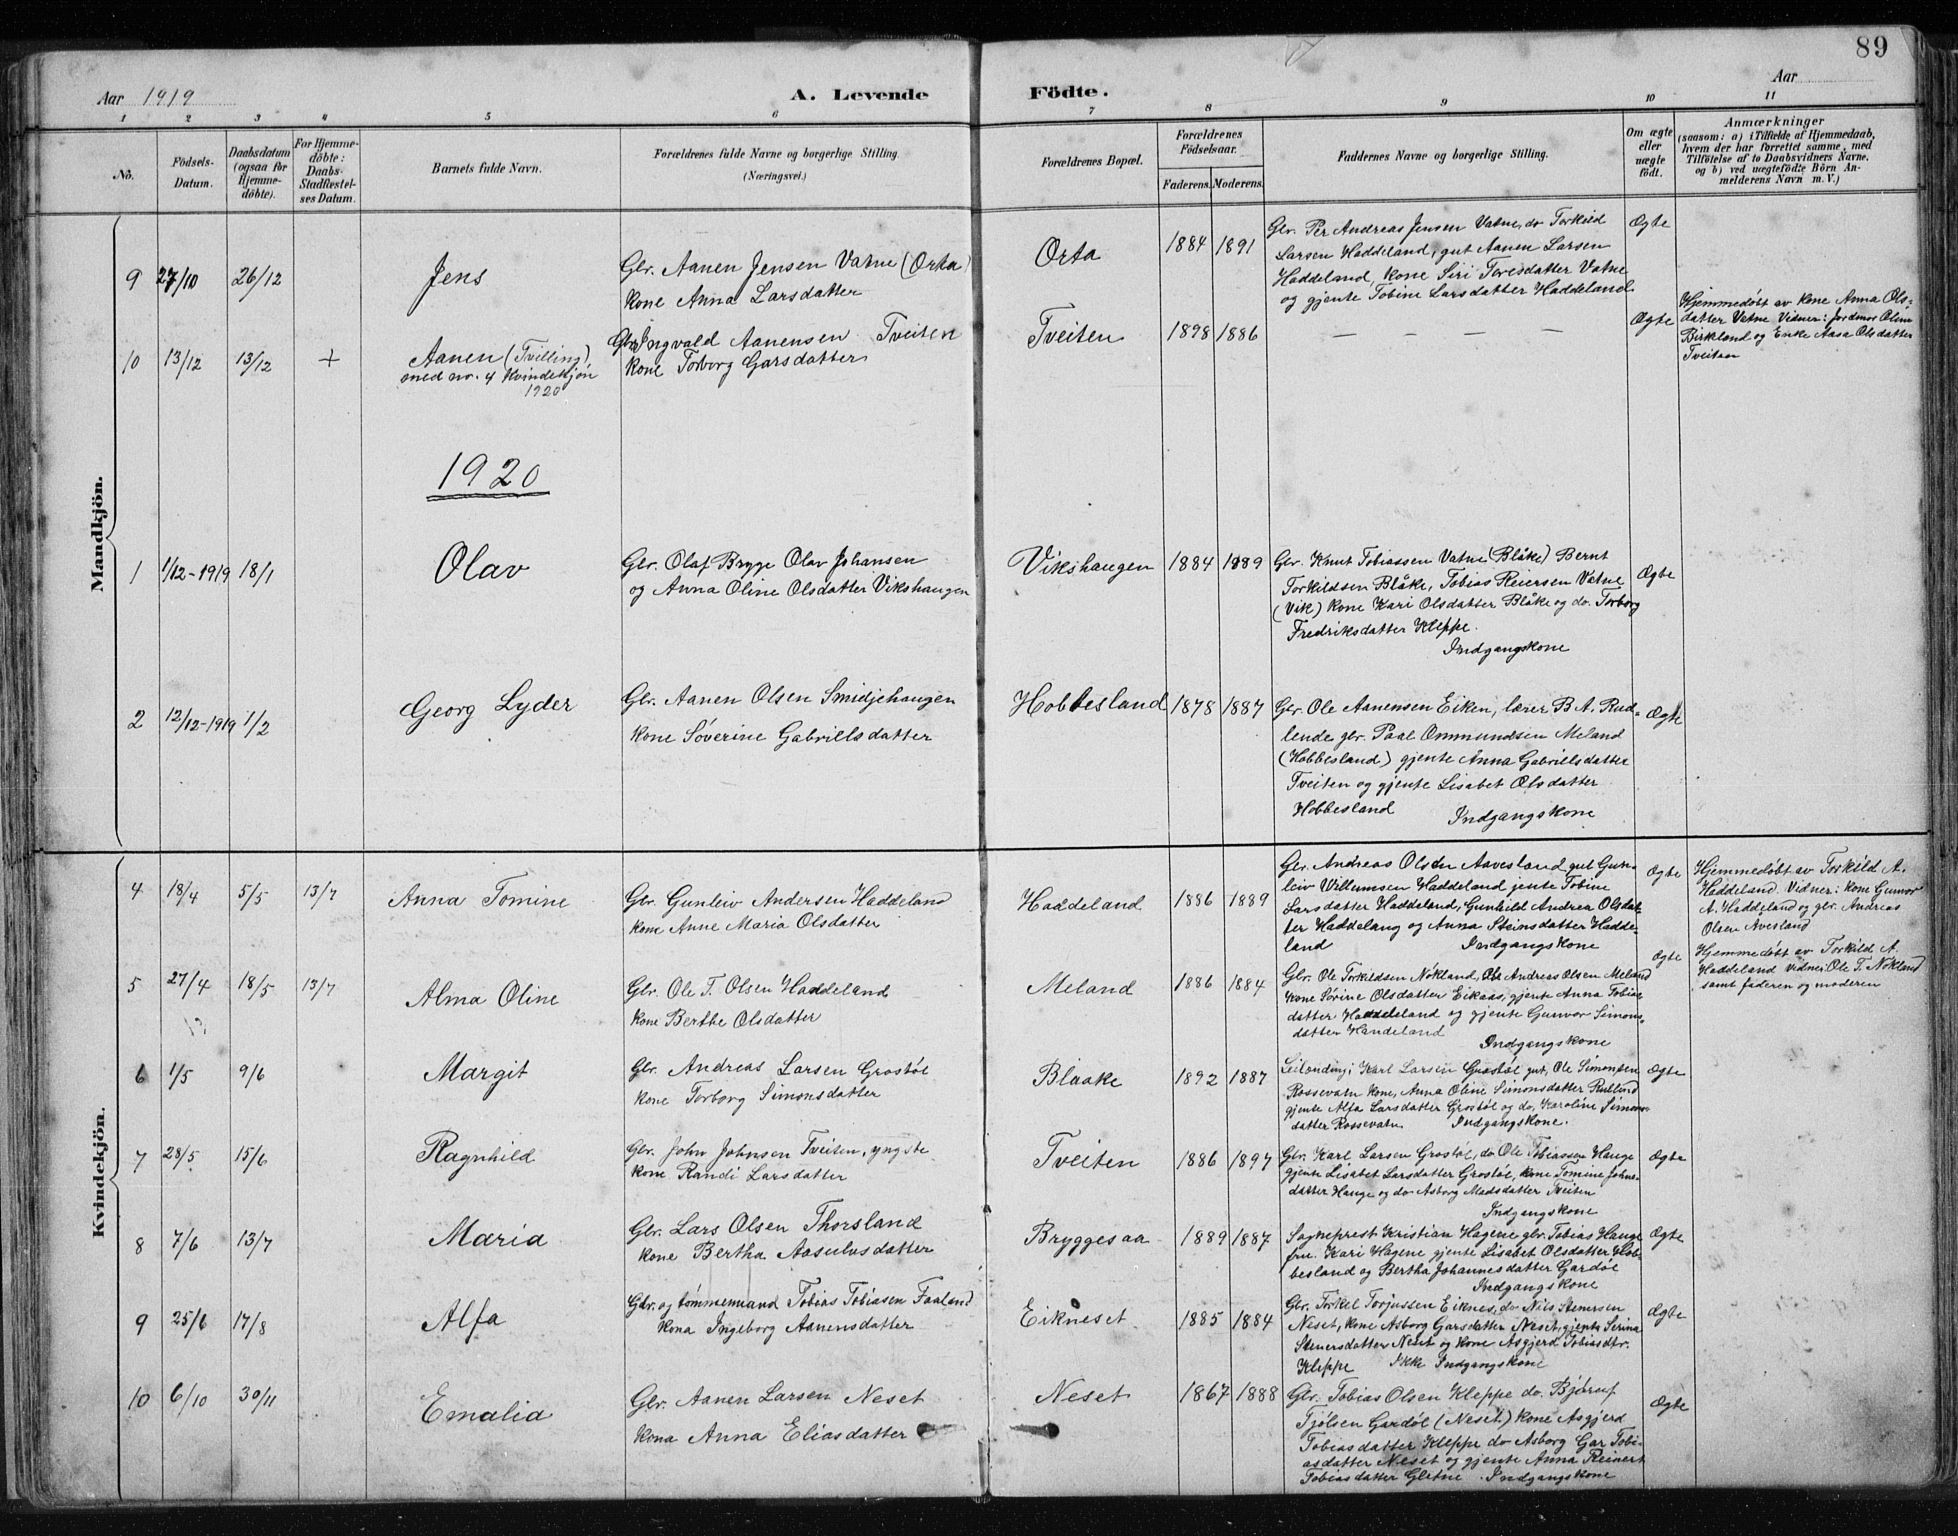 89
Aar 1919
A. Levende
Födte.
Aar
1 2 3 4 5 6 7 8 9 10 11
No.
Födsels-
Datum.
Daabsdatum
(ogsaa for
Hjemme-
döbte).
For Hjemme-
döbte:
Daabs-
Stadfæstel-
ses Datum.
Barnets fulde Navn.
Forældrenes fulde Navne og borgerlige Stilling
(Næringsvei.)
Forældrenes Bopæl.
Forældrenes
Födselsaar.
Faderens. Moderens.
Faddernes Navne og borgerlige Stilling.
Om ægte
eller
uægte
födt.
Anmærkninger
(saasom: a) i Tilfælde af Hjemmedaab,
hvem der har forrettet samme, med
Tilföielse af to Daabsvidners Navne.
og b) ved uægtefödte Börn An-
melderens Navn m. V.)
Mandkjön.
9 27/10 26/12
Jens
Gbr. Aanen Jensen Vatne (Orta)
kone Anna Larsdatter
Orta
1884 1891
Gbr. Per Andreas Jensen Vatne, do Torkild
Larsen Haddeland, gut Aanen Larsen
Haddeland, kone Siri Toresdatter Vatne
og gjente Tobine Larsdatter Haddeland
Ægte
10 13/12 13/12 +
Aanen (Tvilling)
med no. 4 Kvindekjøn
1920
Gbr. Ingvald Aanensen Tveiten
kone Torborg Garsdatter
Tveiten
1898 1886
— — — —
Ægte
Hjemmedøbt av kone Anna Ols-
datter Vatne Vidner: Jordmor Oline
Birkland og Enke Aasa Olsdatter
Tveiten
1920
1 1/12-1919 18/1
Olav
Gbr. Olaf Brygge Olav Johansen
og Anna Oline Olsdatter Vikshaugen
Vikshaugen
1884 1889
Gbr. Knut Tobiassen Vatne (Blåke) Bernt
Torkildsen Blåke, Tobias Reiersen Vatne
(Vik) kone Kari Olsdatter Blåke og do. Torborg
Fredriksdatter Kleppe.
Indgangskone
Ægte
2 12/12-1919 1/2
Georg Lyder
Gbr. Aanen Olsen Smidjehaugen
kone Söverine Gabriellsdatter
Hobbesland
1878 1887
Gbr. Ole Aanensen Eiken, lærer B. A. Rud-
lende gbr. Paal Ommundsen Meland
(Hobbesland) gjente Anna Gabriellsdatter
Tveiten og gjente Lisabet Olsdatter
Hobbesland Indgangskone
Ægte
Kvindekjön.
4 18/4 5/5 13/7
Anna Tomine
Gbr. Gunleiv Andersen Haddeland
kone Anne Maria Olsdatter
Haddeland
1886 1889
Gbr. Andreas Olsen Aavesland, gut Gun-
leiv Villumsen Haddeland jente Tobine
Larsdatter Haddeland, Gunhild Andrea Olsdat-
ter Haddeland og Anna Steinsdatter Hadde-
land Indgangskone
Ægte
Hjemmedøbt av Torkild A.
Haddeland. Vidner: kone Gunvor
A. Haddeland og gbr. Andreas
Olsen Avesland
5 27/4 18/5 13/7
Alma Oline
Gbr. Ole T. Olsen Haddeland
kone Berthe Olsdatter
Meland
1886 1884
Gbr. Ole Torkildsen Nökland, Andreas Olsen Meland
kone Sörine Olsdatter Eikaas, gjente Anna Tobias
datter Haddeland og gjente Gunvor Simons-
datter Handeland
Indgangskone
Ægte
Hjemmedøbt av Torkild A.
Haddeland Vidner: Ole T. Nökland
samt faderen og moderen
6 1/5 9/6
Margit
Gbr. Andreas Larsen Grostöl
kone Torborg Simonsdatter
Blaake
1892 1887
Leilending Karl Larsen Grostöl gut, Ole Simonsen
Rossevatn kone, Anna Oline Simonsdatter Rudlend
gjente Alfa Larsdatter Grostöl og do, Karoline Simons-
datter Rossevatn Indgangskone.
Ægte
7 28/5 15/6
Ragnhild
Gbr. John Johnsen Tveiten, yngste
kone Randi Larsdatter
Tveiten
1886 1897
Gbr. Karl Larsen Grostöl, do Ole Tobiassen Hauge
gjente Lisabet Larsdatter Grostöl, kone Tomine Johns-
datter Hauge og do Asborg Madsdatter Tveiten
Indgangskone
Ægte
8 7/6 13/7
Maria
Gbr. Lars Olsen Thorsland
kone Bertha Aasulvsdatter
Bryggesaa
1889 1887
Sogneprest Kristian Hagene gbr. Tobias Hauge
fru. Kari Hagene gjente Lisabet Olsdatter Hob-
besland og Bertha Johannesdatter Gardöl
Indgangskone
Ægte
9 25/6 17/8
Alfa
Gbr. og tömmermand Tobias Tobiasen Faaland
kona Ingeborg Aanensdatter
Eikneset
1885 1884
Gbr. Torkel Torjussen Eiknes, do Nils Stenersen
Neset, kone Asborg Garsdatter Neset, gjente Serina
Stenersdatter Neset og kone Asgjerd Tobiasdtr.
Kleppe Ikke Indgangskone
Ægte
10 6/10 30/11
Emalia
Gbr. Aanen Larsen Neset
kona Anna Eliasdatter
Neset
1867 1888
Gbr. Tobias Olsen Kleppe do. Bjørulf
Tjölsen Gardöl (Neset) kone Asgjerd
Tobiasdatter Kleppe do Asborg Gar Tobi-
asdatter Neset og gjente Anna Reinert
Tobiasdatter Gletne. Indgangskone
Ægte